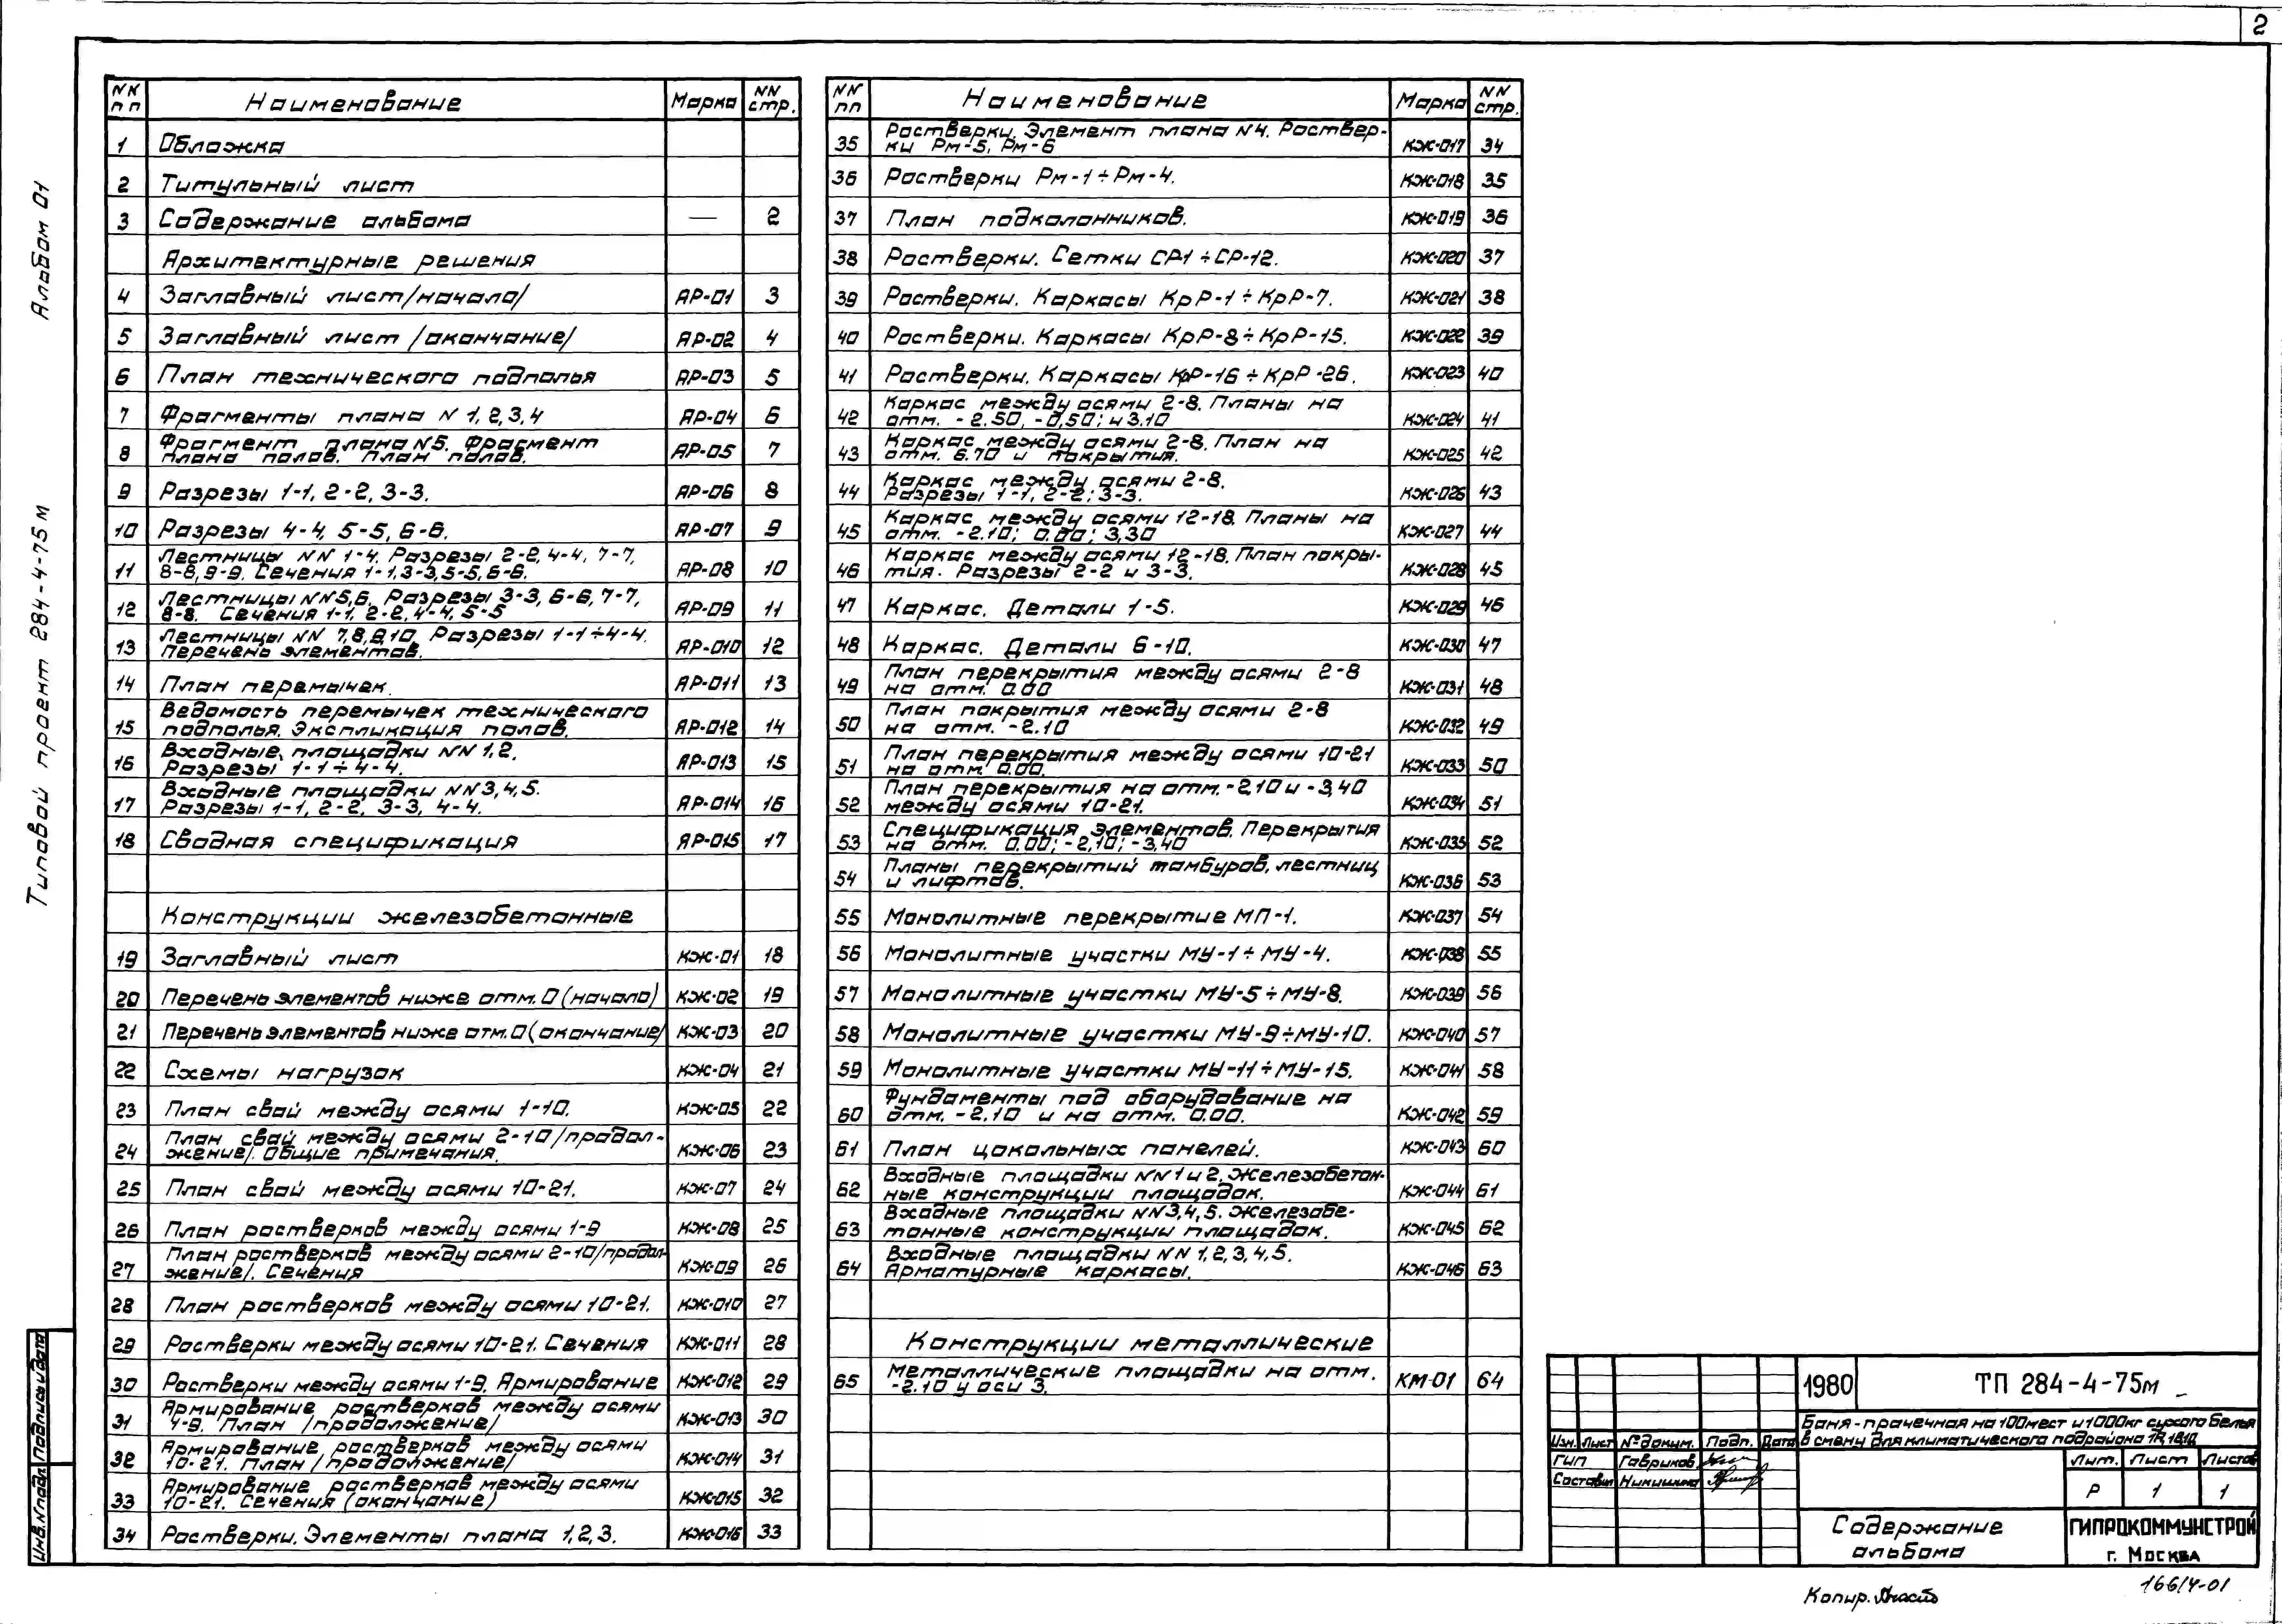 2
Альбом 01
Типовой проект 284-4-75 м
Инв.№подл. Подпись и дата
NN пп Наименование Марка NN стр.
1 Обложка
2 Титульный лист
3 Содержание альбома — 2
Архитектурные решения
4 Заглавный лист /начало/ АР-01 3
5 Заглавный лист /окончание/ АР-02 4
6 План технического подполья АР-03 5
7 Фрагменты плана N 1,2,3,4 АР-04 6
8 Фрагмент плана N5. Фрагмент
плана полов. План полов. АР-05 7
9 Разрезы 1-1, 2-2, 3-3. АР-06 8
10 Разрезы 4-4, 5-5, 6-6. АР-07 9
11 Лестницы NN 1-4. Разрезы 2-2, 4-4, 7-7,
8-8, 9-9. Сечения 1-1, 3-3, 5-5, 6-6. АР-08 10
12 Лестницы NN5,6. Разрезы 3-3, 6-6, 7-7,
8-8. Сечения 1-1, 2-2, 4-4, 5-5 АР-09 11
13 Лестницы NN 7,8,9,10. Разрезы 1-1÷4-4.
Перечень элементов. АР-010 12
14 План перемычек. АР-011 13
15 Ведомость перемычек технического
подполья. Экспликация полов. АР-012 14
16 Входные площадки NN 1,2.
Разрезы 1-1÷4-4. АР-013 15
17 Входные площадки NN3,4,5.
Разрезы 1-1, 2-2, 3-3, 4-4. АР-014 16
18 Сводная спецификация АР-015 17
Конструкции железобетонные
19 Заглавный лист КЖ-01 18
20 Перечень элементов ниже отм. 0 (начало) КЖ-02 19
21 Перечень элементов ниже отм. 0 (окончание/ КЖ-03 20
22 Схемы нагрузок КЖ-04 21
23 План свай между осями 1-10. КЖ-05 22
24 План свай между осями 2-10 /продол-
жение/. Общие примечания. КЖ-06 23
25 План свай между осями 10-21. КЖ-07 24
26 План ростверков между осями 1-9 КЖ-08 25
27 План ростверков между осями 2-10 /продол-
жение/. Сечения КЖ-09 26
28 План ростверков между осями 10-21. КЖ-010 27
29 Ростверки между осями 10-21. Сечения КЖ-011 28
30 Ростверки между осями 1-9. Армирование КЖ-012 29
31 Армирование ростверков между осями
4-9. План /продолжение/ КЖ-013 30
32 Армирование ростверков между осями
10-21. План /продолжение/ КЖ-014 31
33 Армирование ростверков между осями
10-21. Сечения (окончание) КЖ-015 32
34 Ростверки. Элементы плана 1,2,3. КЖ-016 33
NN пп Наименование Марка NN стр.
35 Ростверки. Элемент плана N4. Роствер-
ки Рм-5, Рм-6 КЖ-017 34
36 Ростверки Рм-1÷Рм-4. КЖ-018 35
37 План подколонников. КЖ-019 36
38 Ростверки. Сетки СР-1÷СР-12. КЖ-020 37
39 Ростверки. Каркасы КрР-1÷КрР-7. КЖ-021 38
40 Ростверки. Каркасы КрР-8÷КрР-15. КЖ-022 39
41 Ростверки. Каркасы КрР-16÷КрР-26. КЖ-023 40
42 Каркас между осями 2-8. Планы на
отм. -2.50, -0,50; и 3.10 КЖ-024 41
43 Каркас между осями 2-8. План на
отм. 6.70 и покрытия. КЖ-025 42
44 Каркас между осями 2-8.
Разрезы 1-1, 2-2; 3-3. КЖ-026 43
45 Каркас между осями 12-18. Планы на
отм. -2.10; 0.00; 3,30 КЖ-027 44
46 Каркас между осями 12-18. План покры-
тия. Разрезы 2-2 и 3-3. КЖ-028 45
47 Каркас. Детали 1-5. КЖ-029 46
48 Каркас. Детали 6-10. КЖ-030 47
49 План перекрытия между осями 2-8
на отм. 0.00 КЖ-031 48
50 План покрытия между осями 2-8
на отм. -2.10 КЖ-032 49
51 План перекрытия между осями 10-21
на отм. 0.00. КЖ-033 50
52 План перекрытия на отм. -2,10 и -3,40
между осями 10-21. КЖ-034 51
53 Спецификация элементов. Перекрытия
на отм. 0.00; -2,10; -3,40 КЖ-035 52
54 Планы перекрытий тамбуров, лестниц
и лифтов. КЖ-036 53
55 Монолитные перекрытие МП-1. КЖ-037 54
56 Монолитные участки МУ-1÷МУ-4. КЖ-038 55
57 Монолитные участки МУ-5÷МУ-8. КЖ-039 56
58 Монолитные участки МУ-9÷МУ-10. КЖ-040 57
59 Монолитные участки МУ-11÷МУ-15. КЖ-041 58
60 Фундаменты под оборудование на
отм. -2.10 и на отм. 0.00. КЖ-042 59
61 План цокольных панелей. КЖ-043 60
62 Входные площадки NN 1 и 2. Железобетон-
ные конструкции площадок. КЖ-044 61
63 Входные площадки NN3,4,5. Железобе-
тонные конструкции площадок. КЖ-045 62
64 Входные площадки NN 1,2,3,4,5.
Арматурные каркасы. КЖ-046 63
Конструкции металлические
65 Металлические площадки на отм.
-2.10 у оси 3. КМ-01 64
1980 ТП 284-4-75м
Баня-прачечная на 100 мест и 1000 кг сухого белья
в смену для климатического подрайона
Изм. Лист № докум. Подп. Дата
ГИП Гавриков
Составил Никишина
Лит. Лист Листов
Р 1 1
Содержание
альбома
ГИПРОКОММУНСТРОЙ
г. Москва
Копир.
16614-01